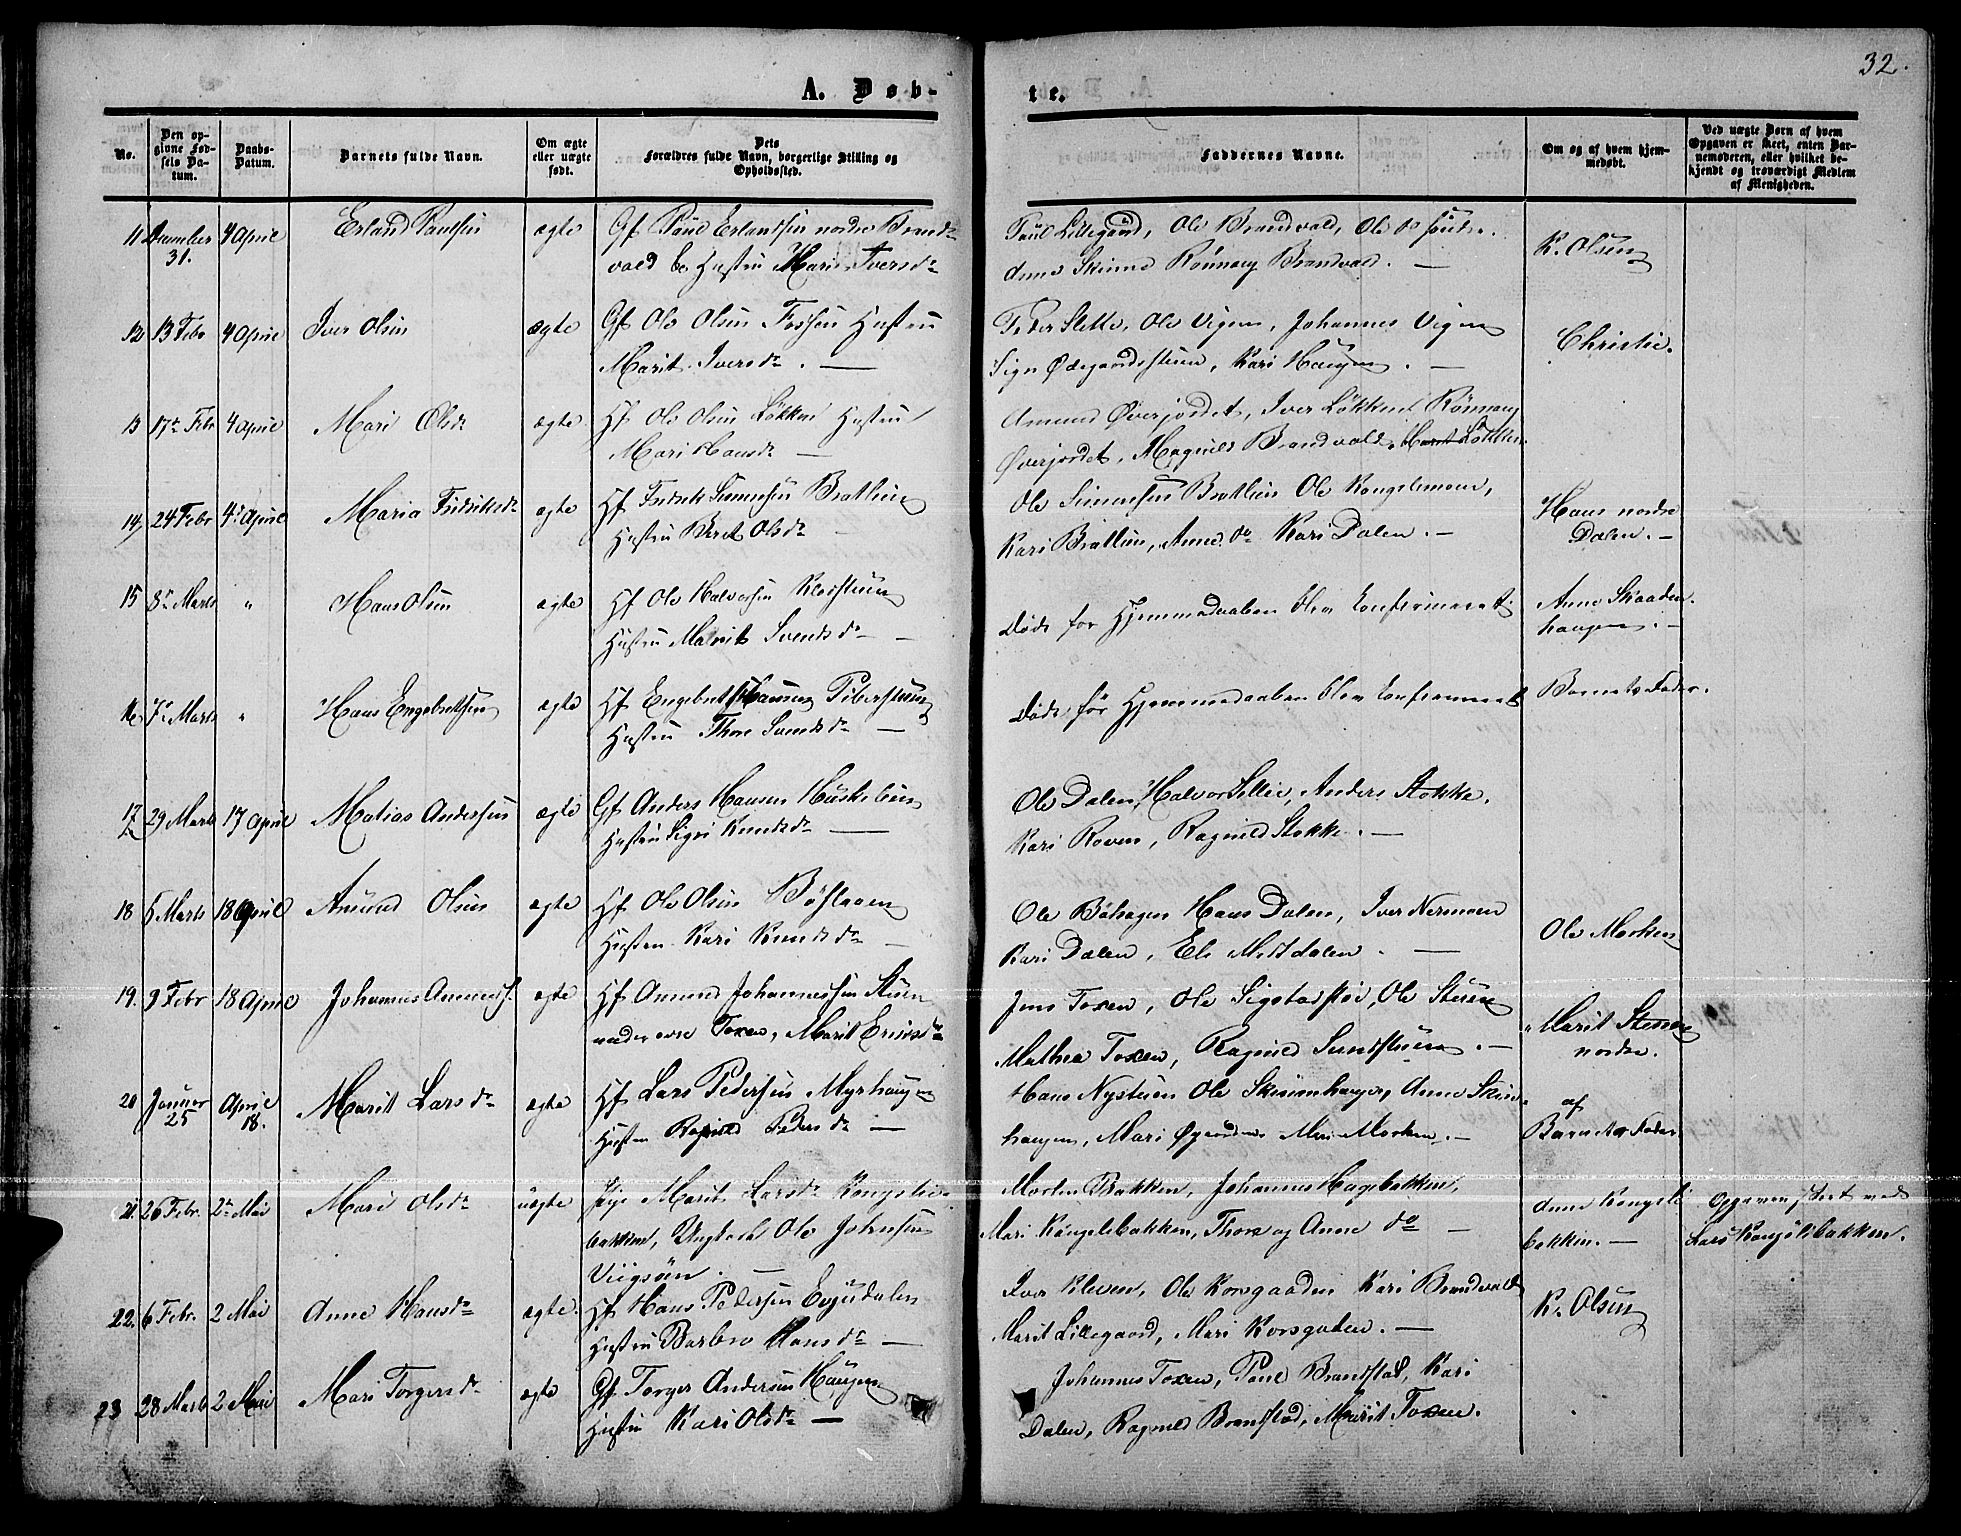 32.
A. Døb-
te.
No.
Den op-
givne Fød-
sels Da-
tum.
Daabs-
Datum.
Barnets fulde Navn.
Om ægte
eller uægte
født.
Dets
Forældres fulde Navn, borgerlige Stilling og
Opholdssted.
Faddernes Navne.
Om og af hvem hjem-
medøbt.
Ved uægte Børn af hvem
Opgaven er skeet, enten Bar-
nemoderen, eller hvilket be-
kjendt og troværdigt Medlem
af Menigheden.
11 December 4 April Erland Paulsen ægte Gf Paul Erlandsen nordre Brand-
31. vold og Hustru Mari Iversdr
Paul Lillegaard, Ole Brandvold, Ole
Anne Skinne Rønnaug Brandvold. —
K. Olsen
12 13 Febr 4 April Iver Olsen ægte Gf Ole Olsen Fossen Hustru
Marit Iversdr. —
Peder Slette, Ole Vigen, Johannes Vigen
Sigri Ødegaardsstuen, Kari Haugen. —
Christie.
13 17de Febr 4 April Mari Olsdr ægte Hf Ole Olsen Løkken Hustru
Mari Hansdr —
Amund Øverjordet, Iver Løkken Rønnaug
Øverjordet, Magnild Brandvold, Marit Løkken.
14 24 Febr 4de April Maria Fredriksdr ægte Hf Fredrik Simensen Bratlien
Hustru Beret Olsdr —
Ole Simensen Bratlien Ole Kongelimoen,
Kari Bratlien, Anne do Kari Dalen. —
Hans nordre
Dalen. —
15 8de Marts " Hans Olsen ægte Hf Ole Halvorsen Klosstuen
Hustru Marit Svendsdr —
Døde før Hjemmedaaben blev konfirmeret.
Anne Skaaden-
haugen. —
16 7de Marts " Hans Engebretsen ægte Hf Engebret Hansen Piberstuen
Hustru Thore Svendsdr —
Døde før Hjemmedaaben blev konfirmeret
Barnets Fader.
17 29 Marts 17 April Matias Andersen ægte Gf Anders Hansen Huskelien
Hustru Sigri Knudsdr —
Ole Dalen, Halvor Lillie, Anders Stokke.
Kari Roven, Ragnild Stokke. —
18 6 Marts 18 April Amund Olsen ægte Hf Ole Olsen Bøhagen
Hustru Kari Knudsdr —
Ole Bøhagen Hans Dalen, Iver Nermoen
Kari Dalen, Eli Mittdalen. —
Ole Morken
19. 9 Febr 18 April Johannes Amunds. ægte Hf Amund Johannessen Stuen
under øvre Toxen, Marit Eriksdr
Jens Toxen, Ole Sigstadstø, Ole Stuen
Mathea Toxen, Ragnild Sundstuen. —
Marit Stuen
nordre.
20 Januar April Marit Larsdr ægte Hf Lars Pedersen Myrhaugen
25 18. Hustru Ragnild Pedersdr —
Hans Nystuen Ole Skinnhaugen, Anne Skin-
haugen, Mari Øygarden Mari Morken. —
af
Barnets Fader
21. 26 Febr. 2de Mai Mari Olsdr uægte Pige Marit Larsdr Kongsli-
bakken, Ungkarl Ole Johnsen
Viigsøen. —
Morten Bakken, Johannes Hagebakken,
Mari Kongelibakken, Thore og Anne do —
Anne Kongsli
bakken. —
Opgaven skeet ved
Lars Kongslibakken.
22. 6 Febr. 2 Mai Anne Hansdr ægte. Hf Hans Pedersen Evjudalen
Hustru Barbro Hansdr —
Iver Kleven, Ole Korsgaarden Kari Brandvold
Marit Lillegaard, Mari Korsgaden. —
K. Olsen
23 28 Marts 2 Mai Mari Torgersdr ægte Gf Torger Andersen Haugen
Hustru Kari Olsdr —
Johannes Toxen, Paul Brandstad, Kari
Dalen, Ragnild Brandstad, Marit Toxen.